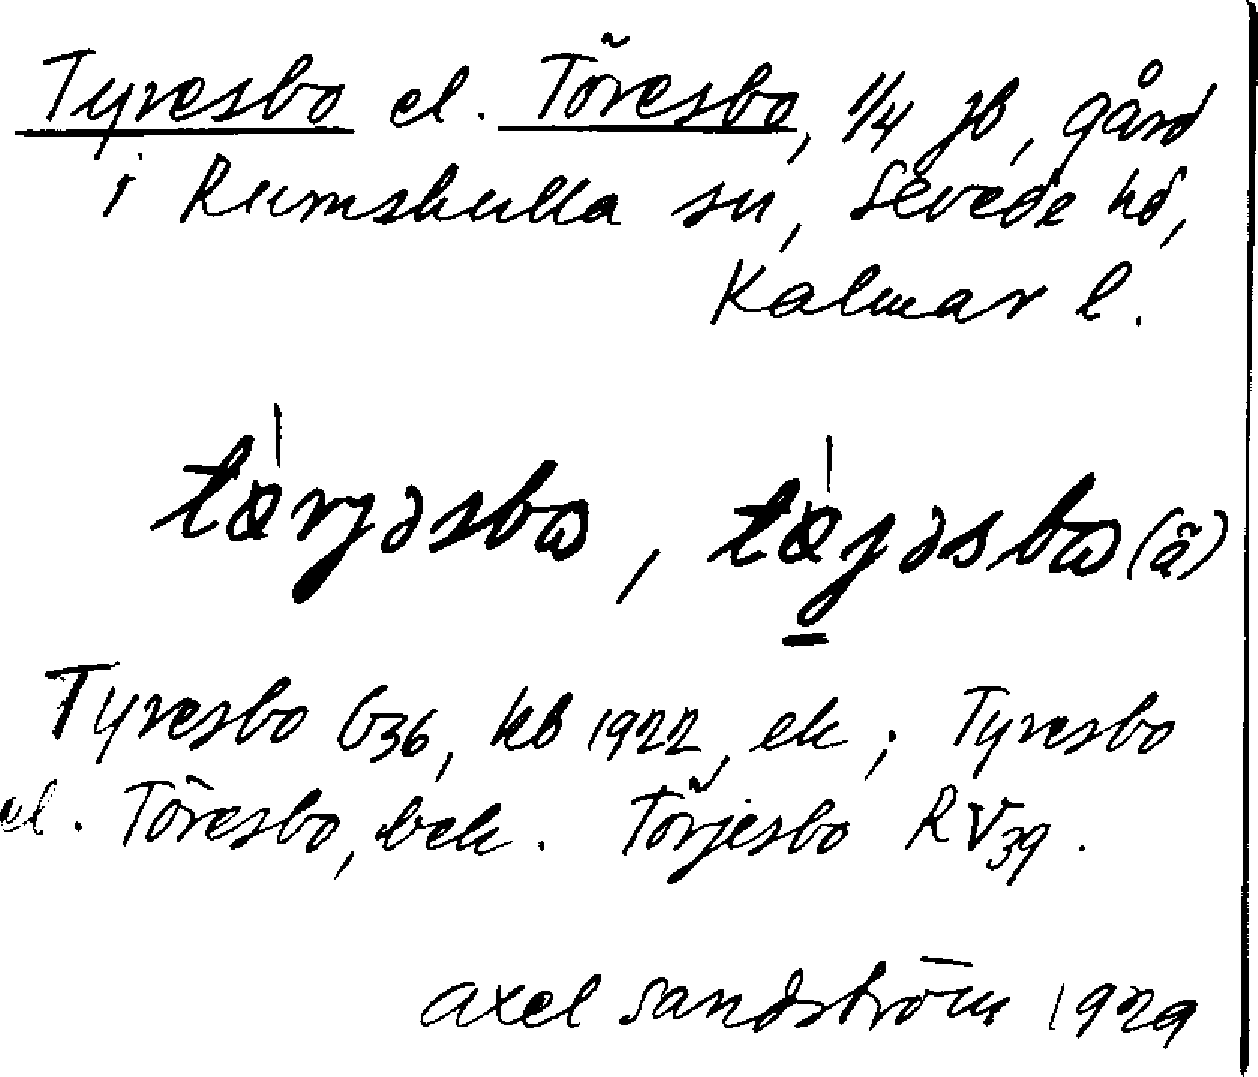 Tyresbo el. Töresbo, 1/4 jb, gård
i Rumskulla sn, Sevede hd,
Kalmar l.
tæ̀rjəsbω, tæ̀jəsbω (ä)
Tyresbo G36, kb 1922, ek; Tyresbo
el. Töresbo, bek. Törjesbo RV39.
Axel Sandström 1929